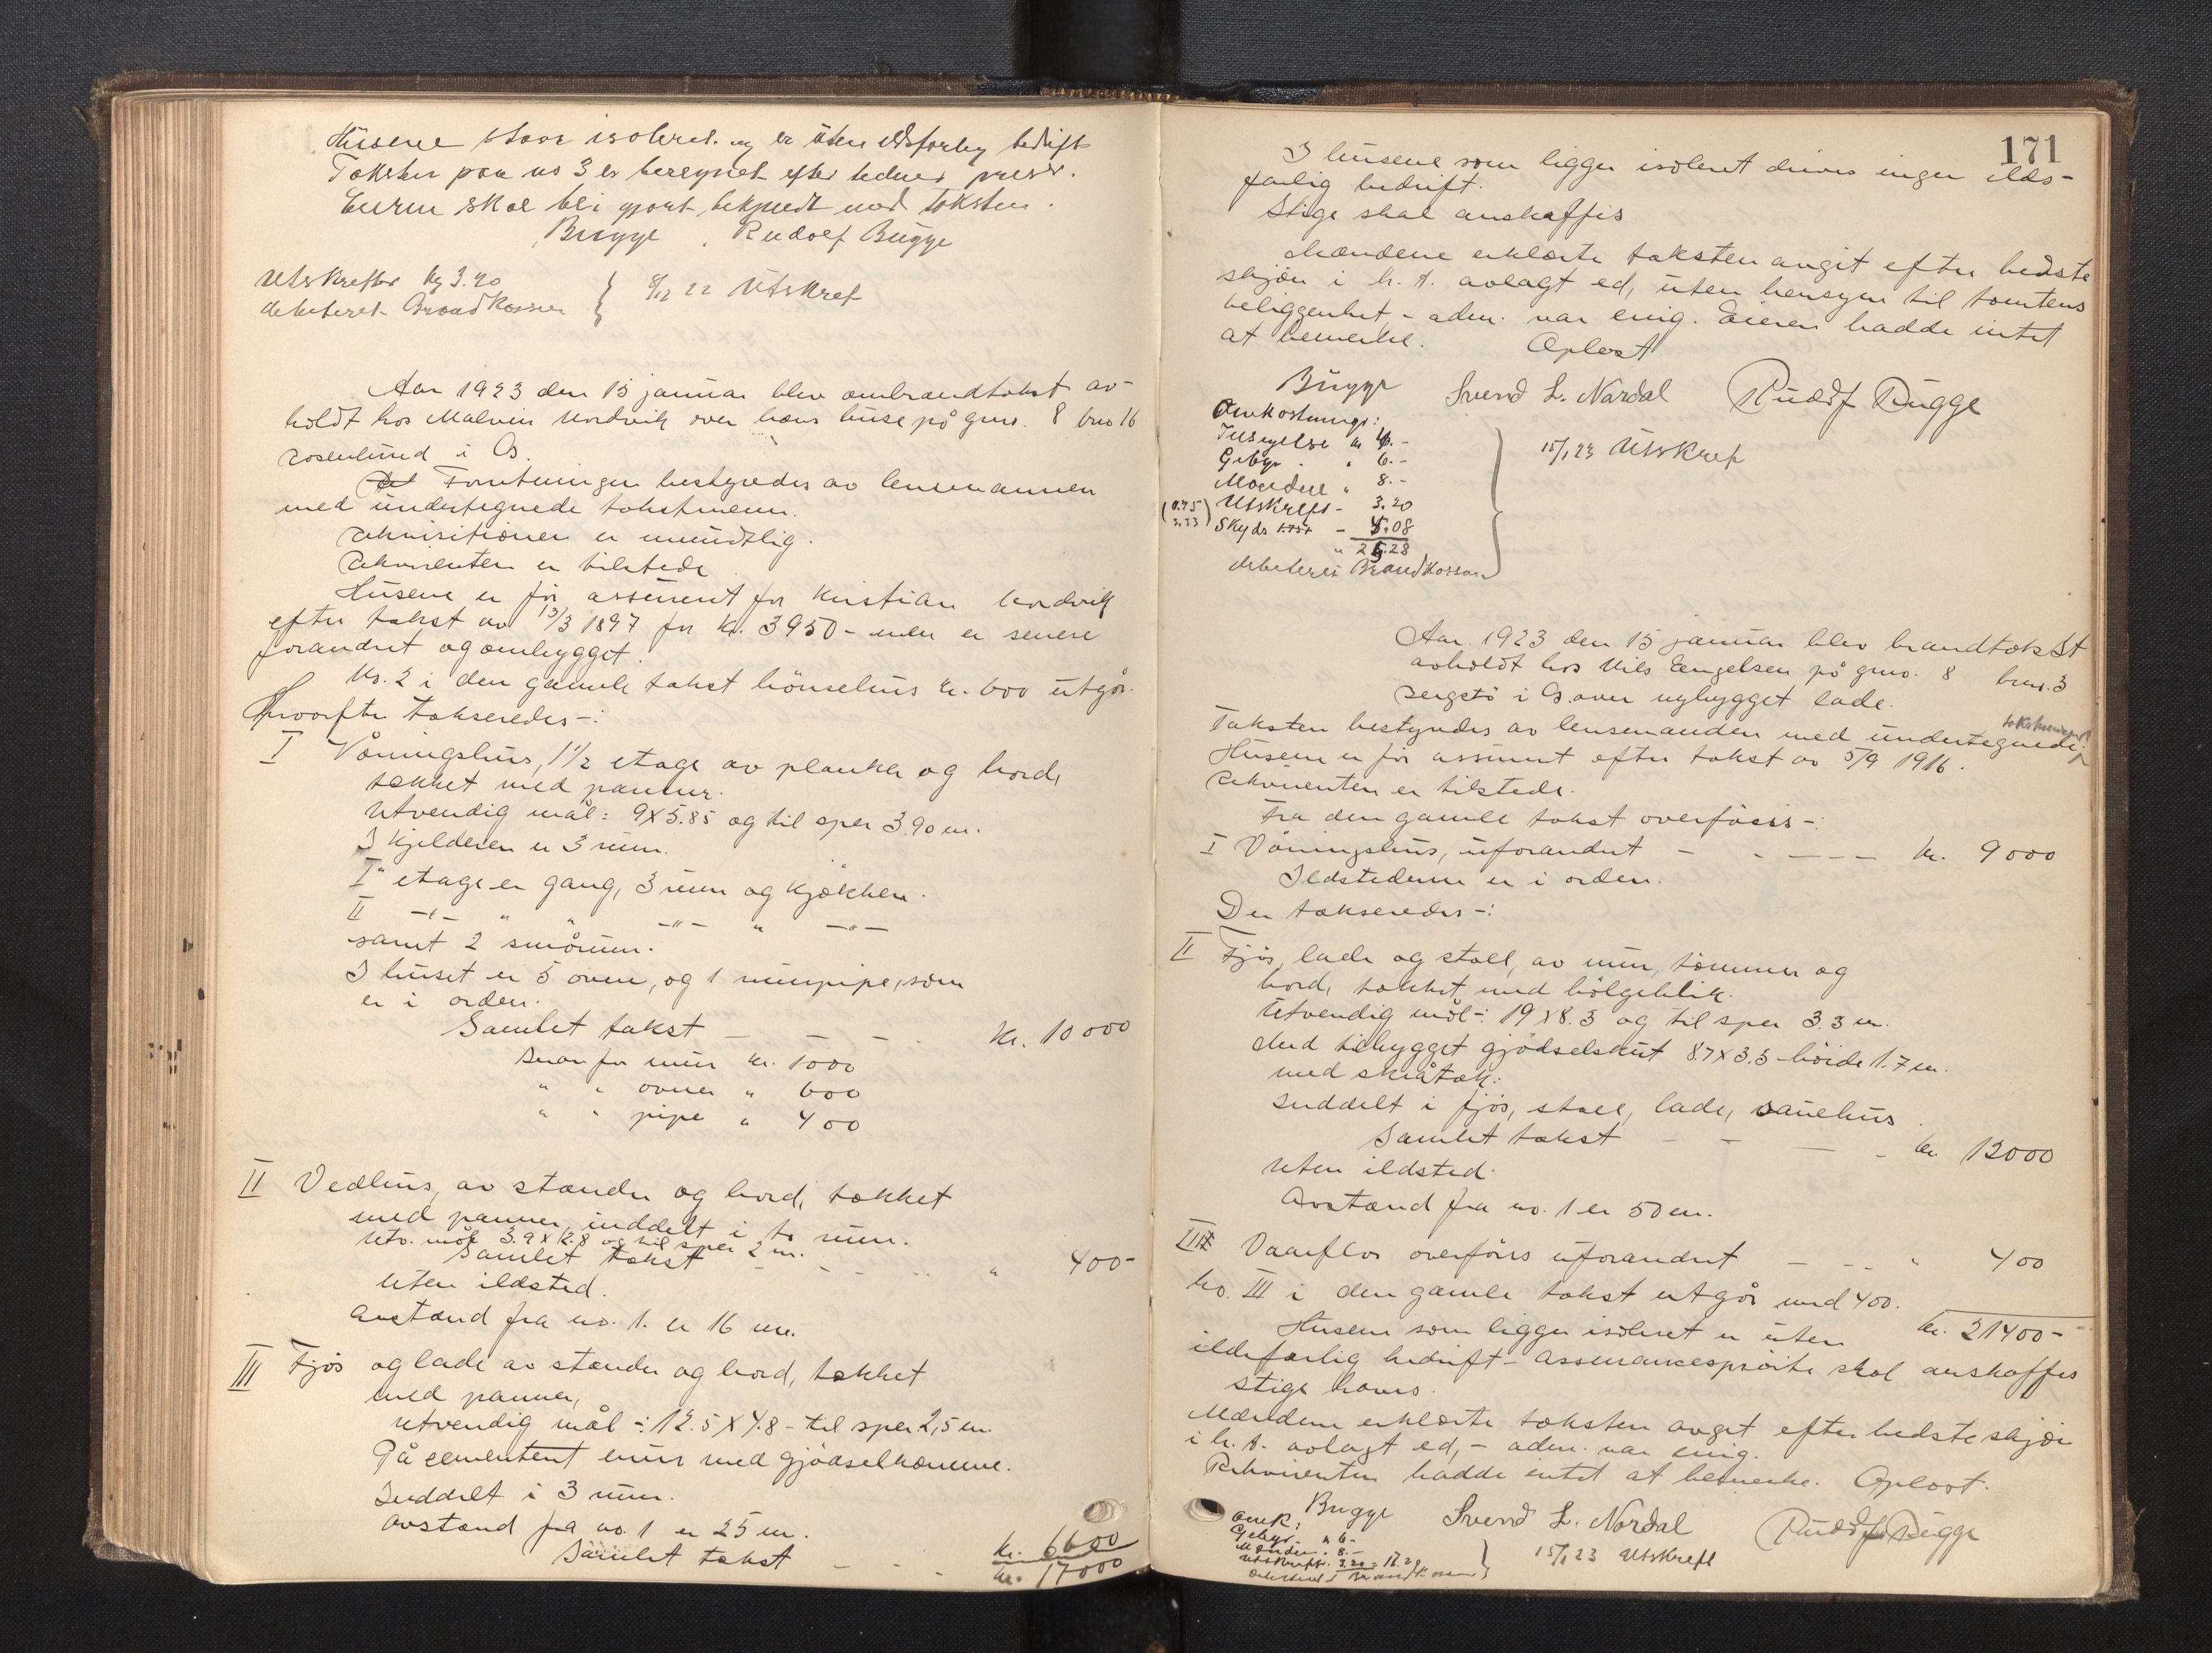 Husene staar isoleret og er uten ildsfarleg bedrift
Taksten paa no 3 er beregnet efter tidens priser.
Eieren skal bli gjort bekjendt med taksten.
Bugge Rudolf Bugge
Utskrefter kr 3.20
debiteret Brandkassen } 8/12 22 Utskref
Aar 1923 den 15 januar blev ombrandtakst av-
holdt hos Malvin Nordvik over hans huse på gno. 8 bno 16
Rosenlund i Os.
Forretningen bestyredes av lensmannen
med undertegnede takstmenn.
Rekvisitionen er mundtlig.
Rekvirenten er tilstede
Husene er før assurert for Kristian Nordvik
efter takst av 13/3 1897 for kr. 3950 - men er senere
forandret og ombygget.
No. 2 i den gamle takst hönsehus kr. 600 utgår.
Hvorefter takseredes -:
I Våningshus, 1 1/2 etage av planker og bord,
tækket med panner.
Utvendig mål: 9 x 5.85 og til sper 3.90 m.
I kjelderen er 3 rum.
I" etage er gang, 3 rum og kjøkken.
II -"- " " -"- " -"-
samt 2 smårum.
I huset er 5 ovne, og 1 murpipe, som
er i orden.
Samlet takst - - - kr. 10 000
Herav for mur kr. 1000
" " ovner " 600
" " pipe " 400
II Vedhus, av stænder og bord, tækket
med panner, inddelt i to rum.
Utv. mål 3.9 x 2.8 og til sper 2 m.
Samlet takst - - - " 400 -
Uten ildsted.
Avstand fra no. 1. er 16 m.
III Fjøs og lade av stænder og bord, tækket
med panner,
Utvendig mål -: 12.5 x 4.8 - til sper 2,5 m.
På cementert mur med gjødselkomme.
Inddelt i 3 rum.
Avstand fra no. 1 er 25 m.
Samlet takst - - kr. 6600
kr. 17000
171
I husene som ligger isoleret drives ingen ilds-
farlig bedrift.
Stige skal anskaffes
Mændene erklærte taksten avgit efter bedste
skjøn i h. t. avlagt ed, uten hensyn til tomtens
beliggenhet - adm. var enig. Eieren hadde intet
at bemerke. Oplæst
Bugge Svend L. Nordal Rudolf Bugge
Omkostninger:
Gebyr " 6.-
Mændene " 8.-
(0.75 Utskreft - 3.20
3.33) Skyds - 4.08
debiteres Brandkassen
15/1 23 Utskref
Aar 1923 den 15 januar blev brandtakst
avholdt hos Nils Engelsen på gno. 8 bno. 3
i Os over nybygget lade.
Taksten bestyredes av lensmanden med undertegnede
Husene er før assurert efter takst av 5/9 1916.
Rekvirenten er tilstede.
Fra den gamle takst overføres -:
I Våningshus, uforandret - - - - kr. 9000
Ildstederne er i orden.
Der takseredes -:
II Fjøs, lade og stall, av mur, tømmer og
bord, tækket med bølgeblik.
Utvendig mål -: 19 x 8.3 og til sper 3.3 m.
Med tilbygget gjødselskut 8.7 x 3.5 - høide 1.7 m.
med skråtak.
Inddelt i fjøs, stall, lade, sauehus
Samlet takst - - - - kr. 12000
Uten ildsted.
Avstand fra no. 1 er 50 m.
III Vaarflor overføres uforandret - - - " 400
No. III i den gamle takst utgår med 400.
kr. 21400 -
Husene som ligger isoleret er uten
ildsfarlig bedrift - Assurancesprøite skal anskaffes
stige haves.
Mændene erklærte taksten avgit efter bedste skjøn
i h. t. avlagt ed, - adm. var enig.
Rekvirenten hadde intet at bemerke. Oplæst.
Bugge Svend L. Nordal Rudolf Bugge
Omk:
Gebyr " 6 -
Mændene " 8.-
Utskreft. 3.20 = 17.20
debiteret Brandkassen
15/1 23 Utskreft